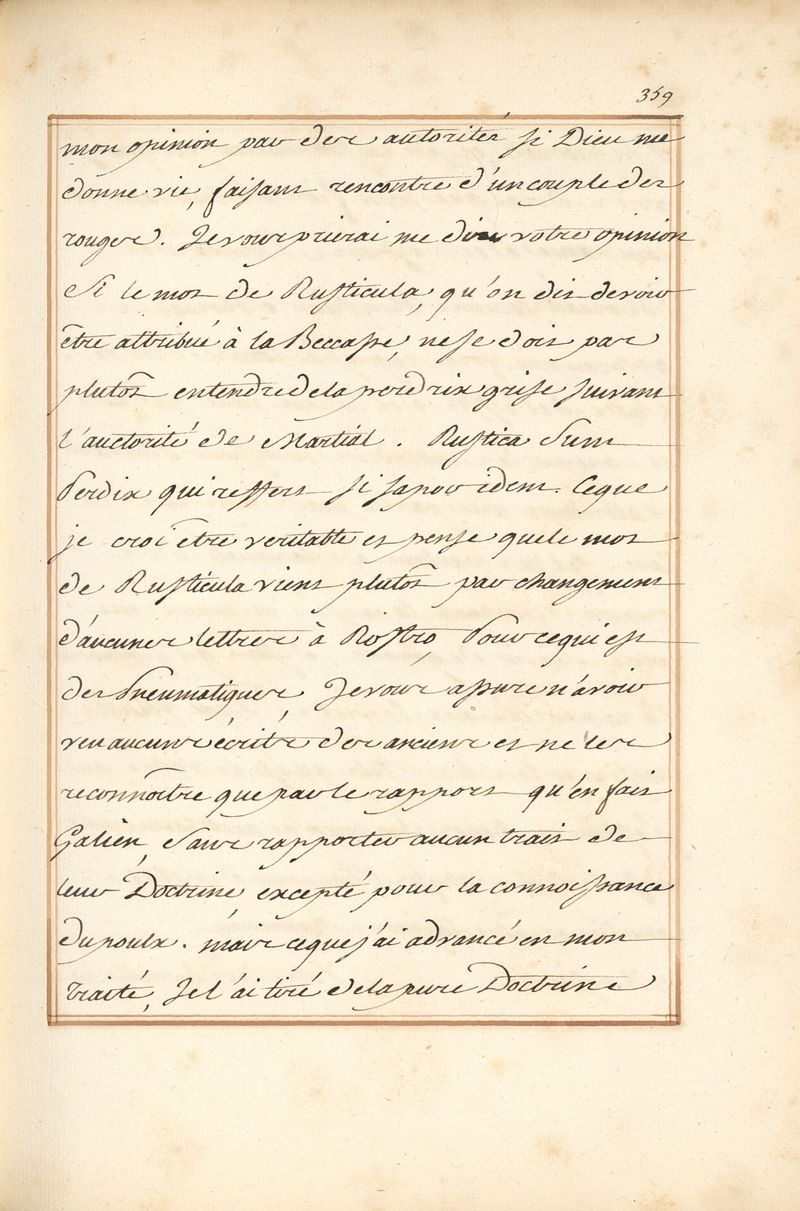 359
mon opinion par des autorités si Dieu me
donne vie, faisant rencontre d'un couple des
rouges. Je vous prierai me dire votre opinion
Si le mot de Rusticula, qu'on dit devoir
être attribué à la Beccasse, ne se doit pas
plutost entendre de la perdrix grise suivant
l'auctorité de Martial. Rustica Sum
Perdix qui reffert si sapor idem. Ceque
je croi être veritable et pense que le mot
de Rusticula vient plutost par changement
d'aucunes lettres à Rostro, Pour ce qui est
des Pneumatiques, Je vous assure n'avoir
veu aucuns écrits des anciens et ne les
reconnoître que par le rapport qu'en fait
Galien, Sans rapporter aucun trait de
leur Doctrine excepté pour la connoissance
du poulx. mais ceque j'ai advancé en mon
traité, Je l'ai tiré de la pure Doctrine